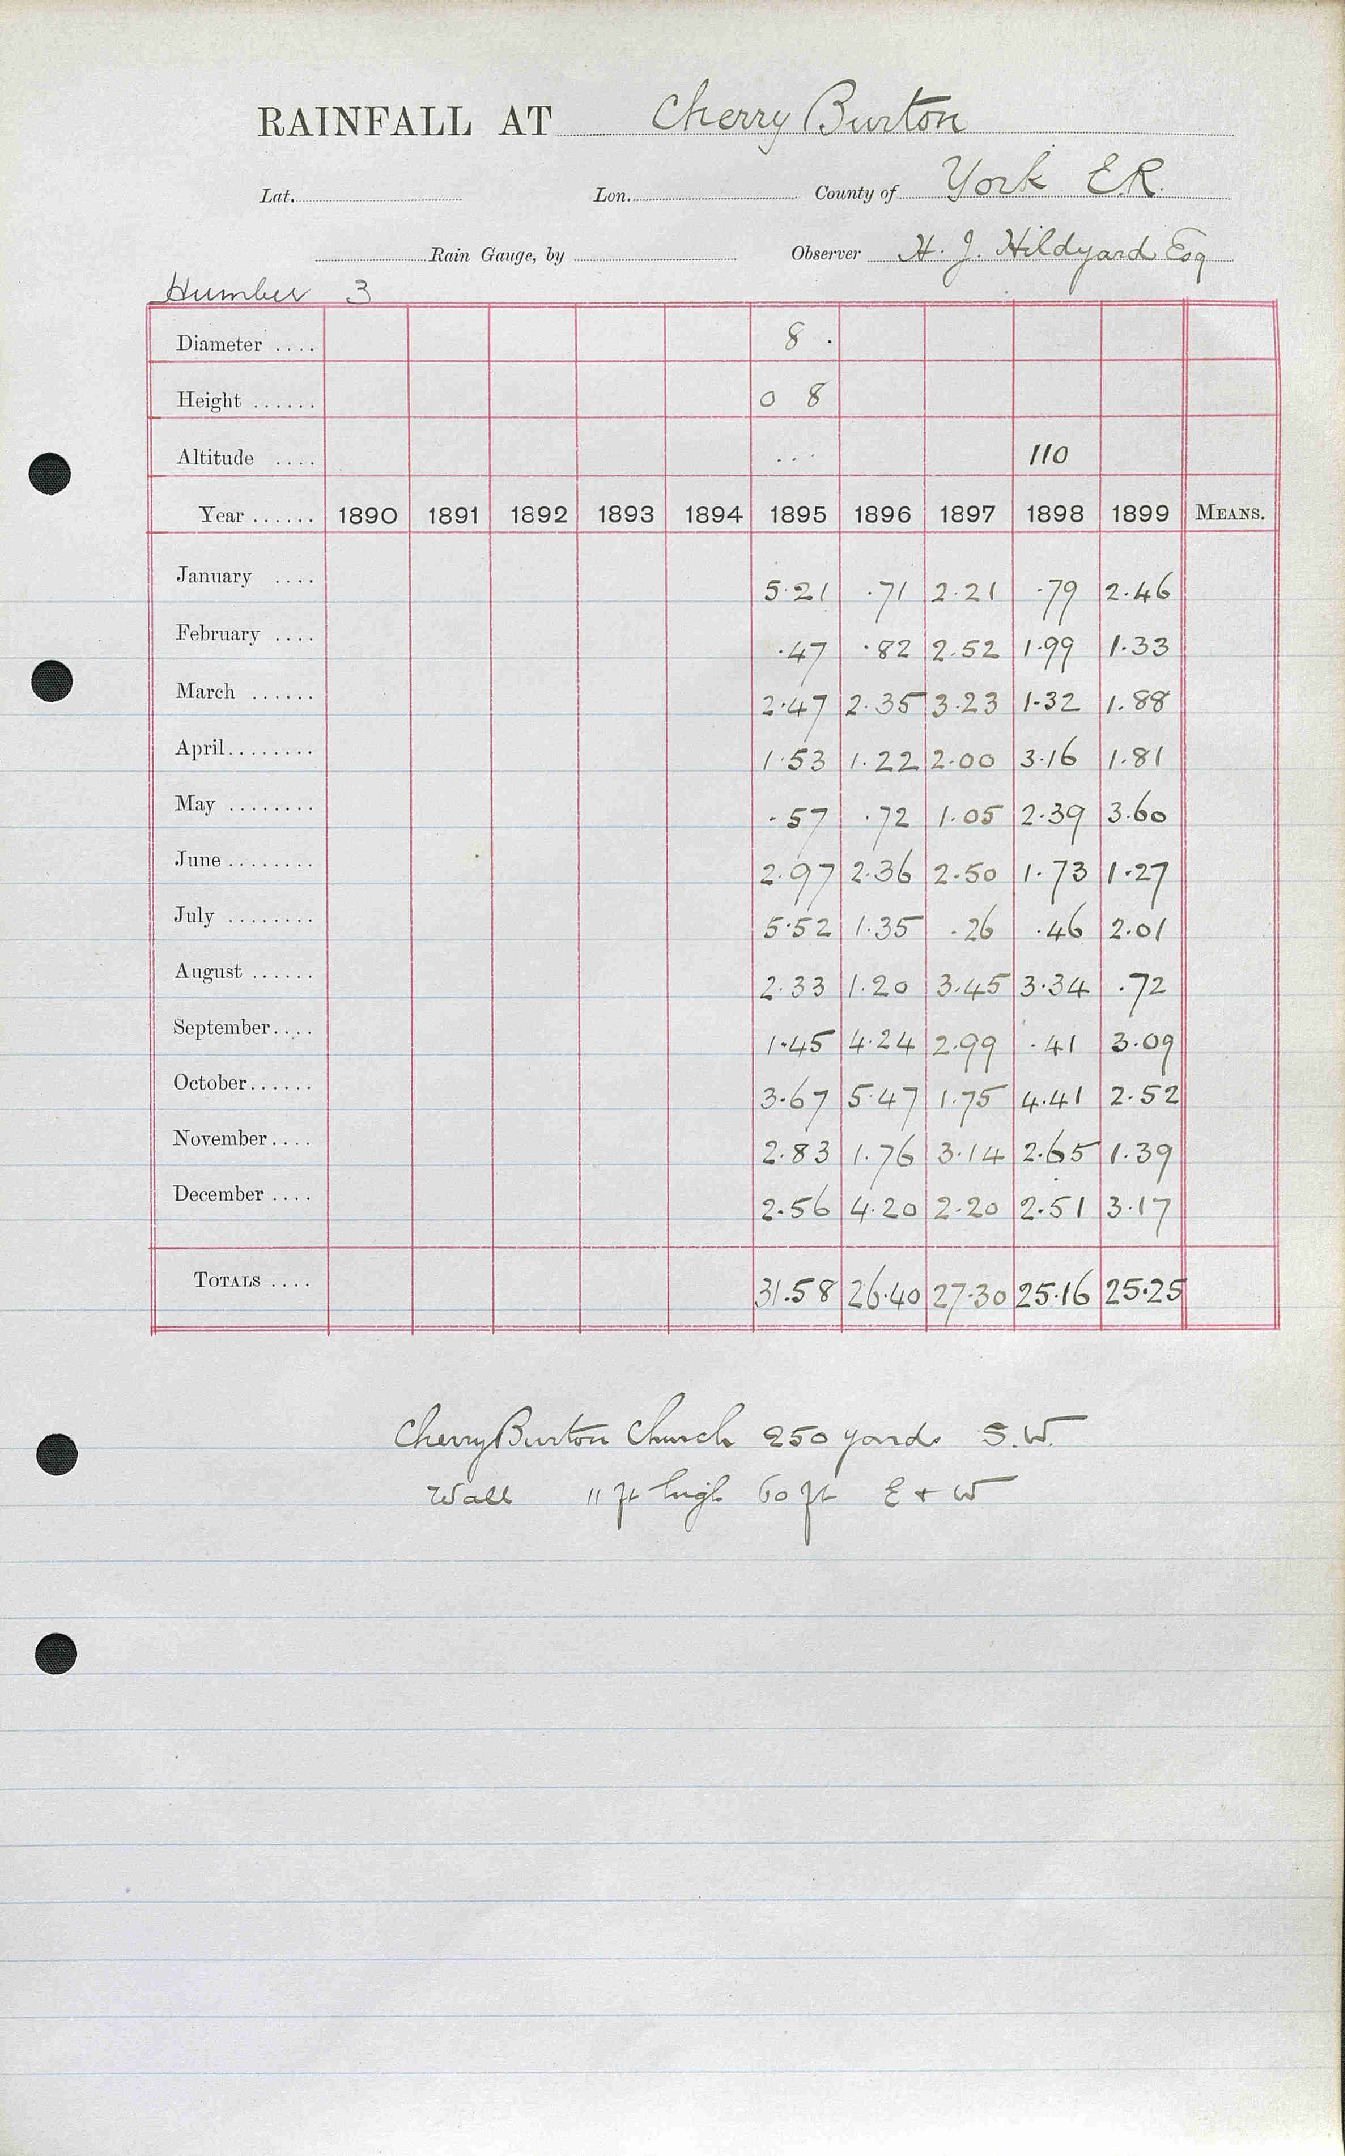 RAINFALL AT Cherry Burton
Lat. Lon. County of York E.R.
Rain Gauge, by Observer H. J. Hildyard Esq
Humber 3
Diameter .... 8 .
Height ...... 0 8
Altitude .... ... 110
Year ...... 1890 1891 1892 1893 1894 1895 1896 1897 1898 1899 MEANS.
January .... 5.21 .71 2.21 .79 2.46
February .... .47 .82 2.52 1.99 1.33
March ...... 2.47 2.35 3.23 1.32 1.88
April........ 1.53 1.22 2.00 3.16 1.81
May ........ .57 .72 1.05 2.39 3.60
June ........ 2.97 2.36 2.50 1.73 1.27
July ........ 5.52 1.35 .26 .46 2.01
August ...... 2.33 1.20 3.45 3.34 .72
September.... 1.45 4.24 2.99 .41 3.09
October...... 3.67 5.47 1.75 4.41 2.52
November.... 2.83 1.76 3.14 2.65 1.39
December .... 2.56 4.20 2.20 2.51 3.17
TOTALS .... 31.58 26.40 27.30 25.16 25.25
Cherry Burton Church 250 yards S.W.
Wall 11 ft high 60 ft E + W